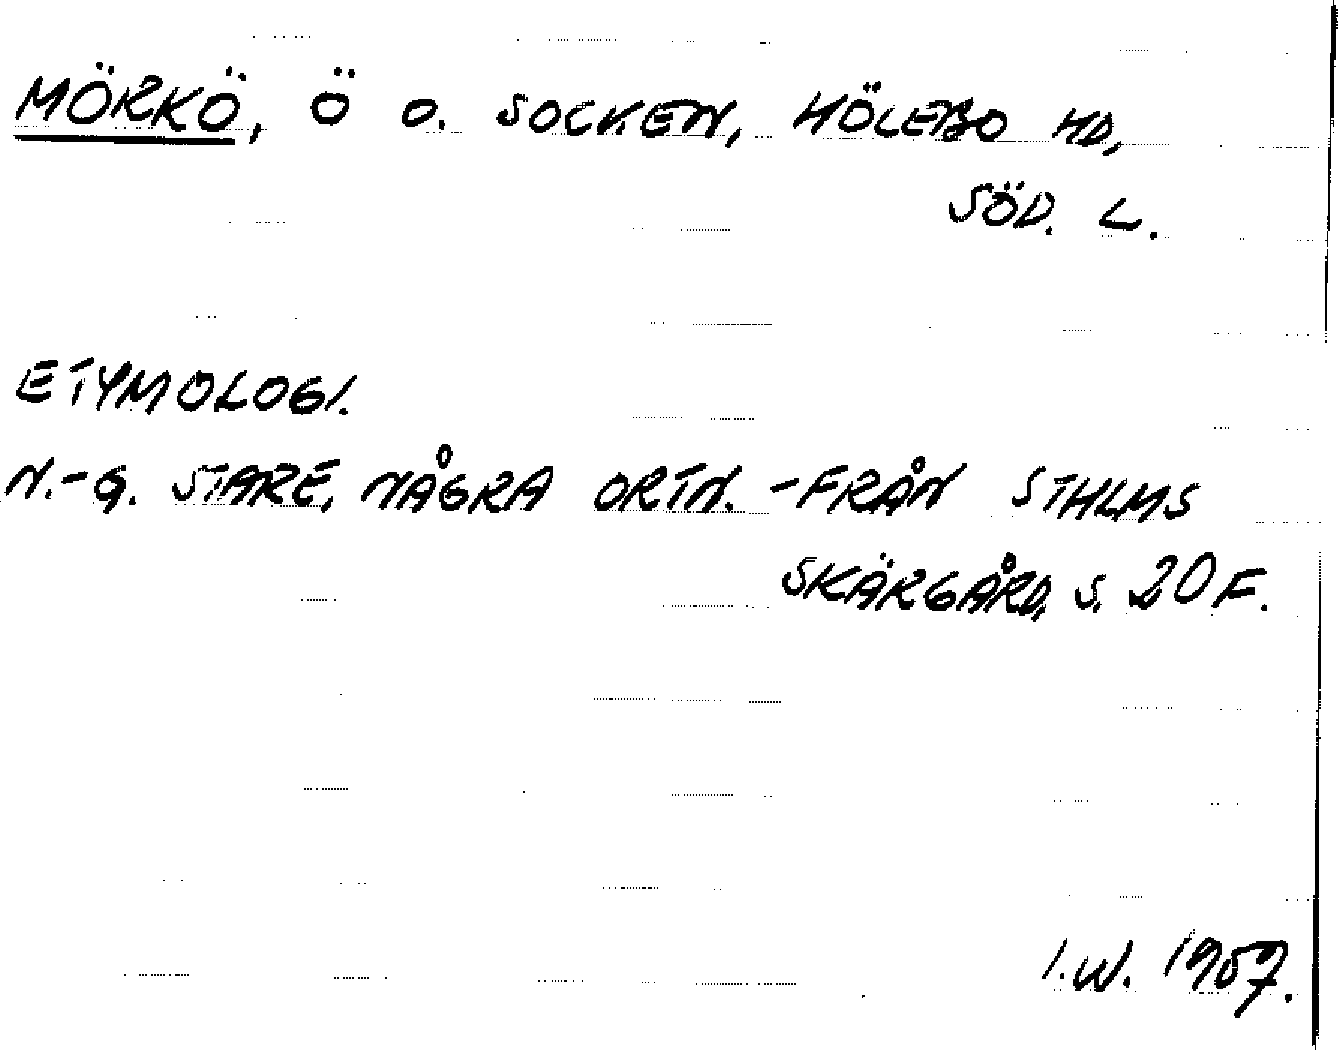 MÖRKÖ, Ö O. SOCKEN, HÖLEBO HD,
SÖD. L.
ETYMOLOGI.
N.-G. STARE, NÅGRA ORTN. -FRÅN STHLMS
SKÄRGÅRD, S. 20 F.
I.W. 1957.